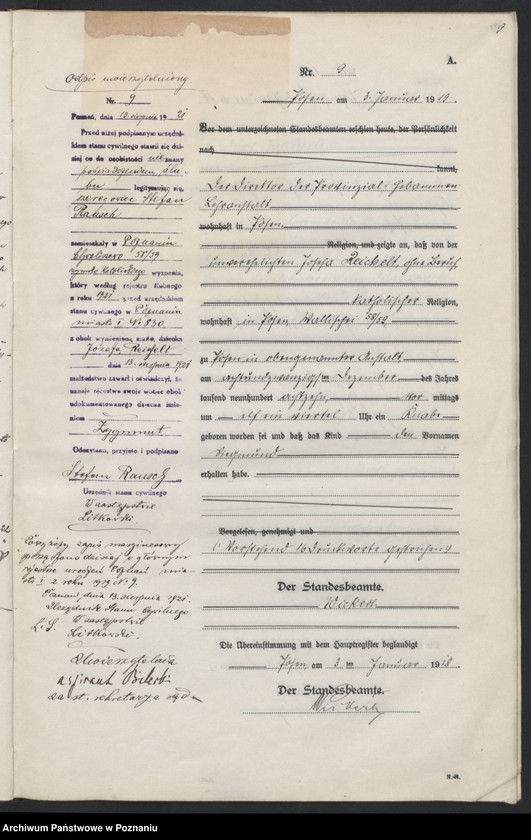 9
A.
Nr. 9
Posen am 3. Januar 1919.
Vor dem unterzeichneten Standesbeamten erschien heute, der Persönlichkeit
nach
kannt,
Der Direktor der Provinzial-Hebammen-
Lehranstalt
wohnhaft in Posen
Religion, und zeigte an, daß von der
unverehelichten Josefa Reichelt, ohne Beruf,
katholischer Religion,
wohnhaft in Posen, Wallischei 58/59,
zu Posen in obengenannter Anstalt
am achtundzwanzigsten Dezember des Jahres
tausend neunhundert achtzehn, vor mittags
um elf ein viertel Uhr ein Knabe
geboren worden sei und daß das Kind den Vornamen
Siegmund
erhalten habe.
Vorgelesen, genehmigt und
(Vorstehend 16 Druckworte gestrichen)
Der Standesbeamte.
Die Übereinstimmung mit dem Hauptregister beglaubigt
Posen, am 3ten Januar 1918.
Der Standesbeamte.
R.-R.
Odpis uwierzytelniony
Nr. 9
Poznań, dnia 13 sierpnia 1921
Przed niżej podpisanym urzędni-
kiem stanu cywilnego stawił się dzi-
siaj co do osobistości uznany
poświadczeniem ślu-
bu legitymując się,
Stefan
Rausch
zamieszkały w Poznaniu
Chwaliszewo 58/59
katolickiego wyznania,
który według rejestru ślubnego
z roku 1921 przed urzędnikiem
stanu cywilnego w Poznaniu
miasto I Nr. 830
z obok wymienioną matką dziecka
Józefą Reichelt
dnia 13. sierpnia 1921
małżeństwo zawarł i oświadczył, że
uznaje nieślubne swoje wobec obok
udokumentowanego dziecka imie-
niem
Zygmunt
Odczytano, przyjęto i podpisano
Stefan Rausch
Urzędnik stanu cywilnego
W zastępstwie
Litkowski
Powyższy zapis marginesowy
zgodny z głównym
rejestrem urodzeń Poznań mia-
sto I z roku 1919 Nr. 9.
Poznań, dnia 13. sierpnia 1921.
Urzędnik Stanu Cywilnego
L. S. W zastępstwie
Litkowski.
Uwierzytelnia
aspirant
za st. sekretarza sąd
Archiwum Państwowe w Poznaniu